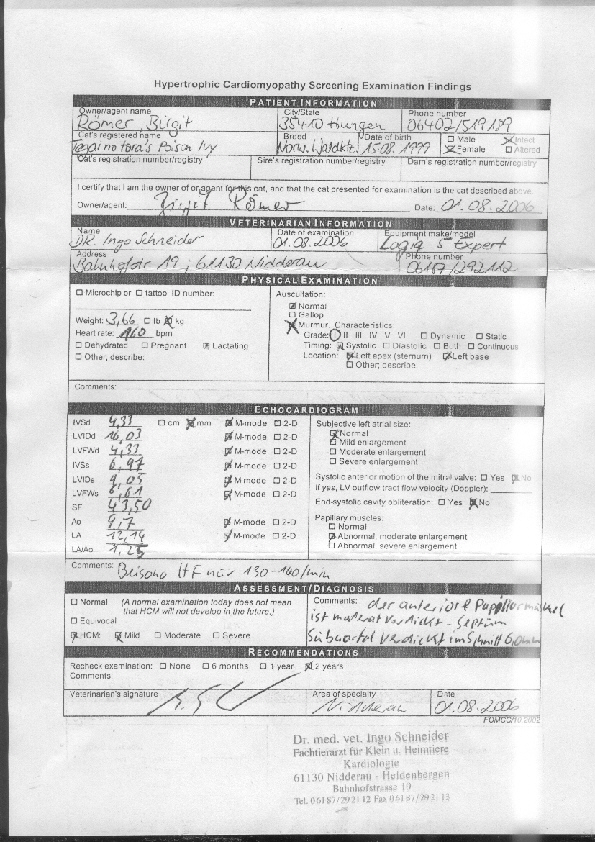 Hypertrophic Cardiomyopathy Screening Examination Findings
PATIENT INFORMATION
Owner/agent name City/State Phone number
Römer, Birgit 35410 Hungen 06402/519189
Cat's registered name Breed Date of birth □ Male ☒ Intact
Poison Ivy Norw. Waldktz. 15.08.1999 ☒ Female □ Altered
Cat's registration number/registry Sire's registration number/registry Dam's registration number/registry
I certify that I am the owner of or agent for this cat, and that the cat presented for examination is the cat described above.
Owner/agent: Birgit Römer Date: 01.08.2006
VETERINARIAN INFORMATION
Name Date of examination Equipment make/model
Dr. Ingo Schneider 01.08.2006 Logiq 5 Expert
Address Phone number
Bahnhofstr 19, 61130 Nidderau 06187/292112
PHYSICAL EXAMINATION
□ Microchip or □ tattoo ID number: Auscultation:
☒ Normal
□ Gallop
Weight: 3,66 □ lb ☒ kg ☒ Murmur, Characteristics
Heart rate: 160 bpm Grade: I II III IV V VI □ Dynamic □ Static
□ Dehydrated □ Pregnant ☒ Lactating Timing: ☒ Systolic □ Diastolic □ Both □ Continuous
□ Other, describe: Location: ☒ Left apex (sternum) ☒ Left base
□ Other, describe
Comments:
ECHOCARDIOGRAM
IVSd 4,33 □ cm ☒ mm ☒ M-mode □ 2-D Subjective left atrial size:
LVIDd 16,03 ☒ M-mode □ 2-D ☒ Normal
LVFWd 4,33 ☒ M-mode □ 2-D □ Mild enlargement
□ Moderate enlargement
IVSs 6,97 ☒ M-mode □ 2-D □ Severe enlargement
LVIDs 9,05 ☒ M-mode □ 2-D Systolic anterior motion of the mitral valve: □ Yes ☒ No
LVFWs 6,61 ☒ M-mode □ 2-D If yes, LV outflow tract flow velocity (Doppler):
SF 43,50 End-systolic cavity obliteration: □ Yes ☒ No
Ao 9,7 ☒ M-mode □ 2-D Papillary muscles:
□ Normal
LA 12,14 ☒ M-mode □ 2-D ☒ Abnormal, moderate enlargement
LA/Ao 1,25 □ Abnormal, severe enlargement
□ Comments: HF nur 130-140/min
ASSESSMENT/DIAGNOSIS
□ Normal (A normal examination today does not mean that HCM will not develop in the future.) Comments: der anteriore Papillarmuskel
□ Equivocal ist moderat verdickt - Septum
☒ HCM: ☒ Mild □ Moderate □ Severe verdickt im Schnitt
RECOMMENDATIONS
Recheck examination: □ None □ 6 months □ 1 year ☒ 2 years
Comments
Veterinarian's signature Area of specialty Date
Nidderau 01.08.2006
Dr. med. vet. Ingo Schneider
Fachtierarzt für Klein u. Heimtiere
Kardiologie
61130 Nidderau - Heldenbergen
Bahnhofstrasse 19
Tel. 06187/292112 Fax 06187/292113